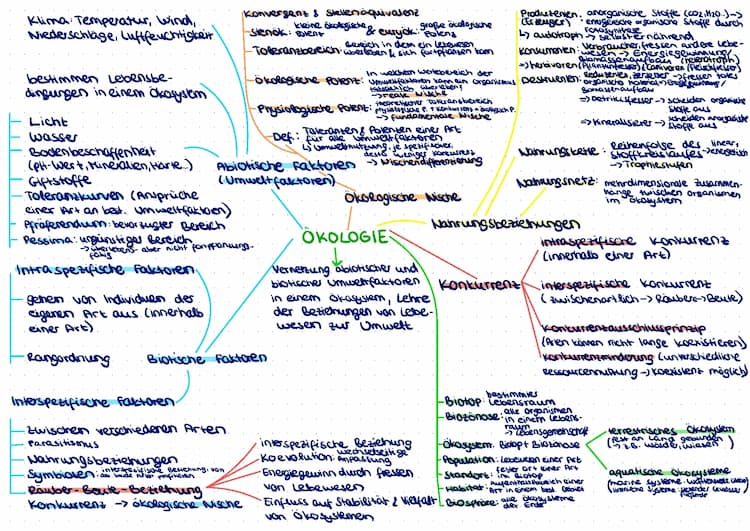 Klima: Temperatur, Wind,
Niederschläge, Luftfeuchtigkeit
bestimmen Lebensbe-
dingungen in einem Ökosystem
Licht
Wasser
Bodenbeschaffenheit
(pH-Wert, Mineralien, Härte..)
Giftstoffe
Toleranzkurven (Ansprüche
einer Art an best. Umweltfaktoren)
Präferendum: bevorzugter Bereich
Pessima: ungünstiger Bereich
→ überleben, aber nicht fortpflanzungs-
fähig
Abiotische Faktoren
(Umweltfaktoren)
Konvergent & Stellenäquivalenz
stenök: kleine ökologische Potenz & euryök: große ökologische Potenz
Toleranzbereich: Bereich in dem ein Lebewesen
überleben & sich fortpflanzen kann
Ökologische Potenz: In welchem Wertebereich der
Umweltfaktoren kann ein Organismus
tatsächlich überleben?
→ reale Nische
Physiologische Potenz: theoretischer Toleranzbereich
→ fundamentale Nische
Def.: Toleranzen & Potenzen einer Art
für alle Umweltfaktoren
↳ Umweltnutzung, je spezifischer,
desto weniger Konkurrenz
→ Nischendifferenzierung
Ökologische Nische
Produzenten: anorganische Stoffe (CO2, H2O..) →
(Erzeuger) energiereiche organische Stoffe durch
Fotosynthese
↳ autotroph → selbsternährend
Konsumenten: Verbraucher, fressen andere Lebe-
wesen → Energiegewinnung/
Biomassenaufbau (heterotroph)
→ Herbivoren (Pflanzenfresser) / Carnivoren (Fleischfresser)
Destruenten: Reduzenten, Zersetzer → fressen totes
organisches Material → Energienutzung/
Biomassenaufbau
→ Detritusfresser → scheiden organische
Stoffe aus
→ Mineralisierer → scheiden anorganische
Stoffe aus
Nahrungskette: Reihenfolge des linear,
Stoffkreislaufs → energetisch
→ Trophiestufen
Nahrungsnetz: mehrdimensionale Zusammen-
hänge zwischen Organismen
im Ökosystem
Nahrungsbeziehungen
ÖKOLOGIE
Vernetzung abiotischer und
biotischer Umweltfaktoren
in einem Ökosystem, Lehre
der Beziehungen von Lebe-
wesen zur Umwelt
Konkurrenz
intraspezifische Konkurrenz
(innerhalb einer Art)
interspezifische Konkurrenz
(zwischenartlich → Räuber-Beute)
Konkurrenzausschlussprinzip
(Arten können nicht lange koexistieren)
Konkurrenzminderung (unterschiedliche
Ressourcennutzung → Koexistenz möglich)
Intraspezifische Faktoren
gehen von Individuen der
eigenen Art aus (innerhalb
einer Art)
Rangordnung
Biotische Faktoren
Interspezifische Faktoren
zwischen verschiedenen Arten
Parasitismus
Nahrungsbeziehungen
Symbiosen: interspezifische Beziehung, von
der beide Arten profitieren
Räuber-Beute-Beziehung
Konkurrenz → ökologische Nische
interspezifische Beziehung
Koevolution: wechselseitige
Anpassung
Energiegewinn durch fressen
von Lebewesen
Einfluss auf Stabilität & Vielfalt
von Ökosystemen
Biotop: bestimmter
Lebensraum
Biozönose: alle Organismen
in einem Lebens-
raum
→ Lebensgemeinschaft
Ökosystem: Biotop + Biozönose
Population: Lebewesen einer Art
Standort: fester Ort einer Art
im Biotop
Habitat: Aufenthaltsbereich einer
Art in einem best. Gebiet
Biosphäre: alle Ökosysteme
der Erde
terrestrisches Ökosystem
(fest an Land gebunden
→ z.B. Wälder, Wiesen)
aquatische Ökosysteme